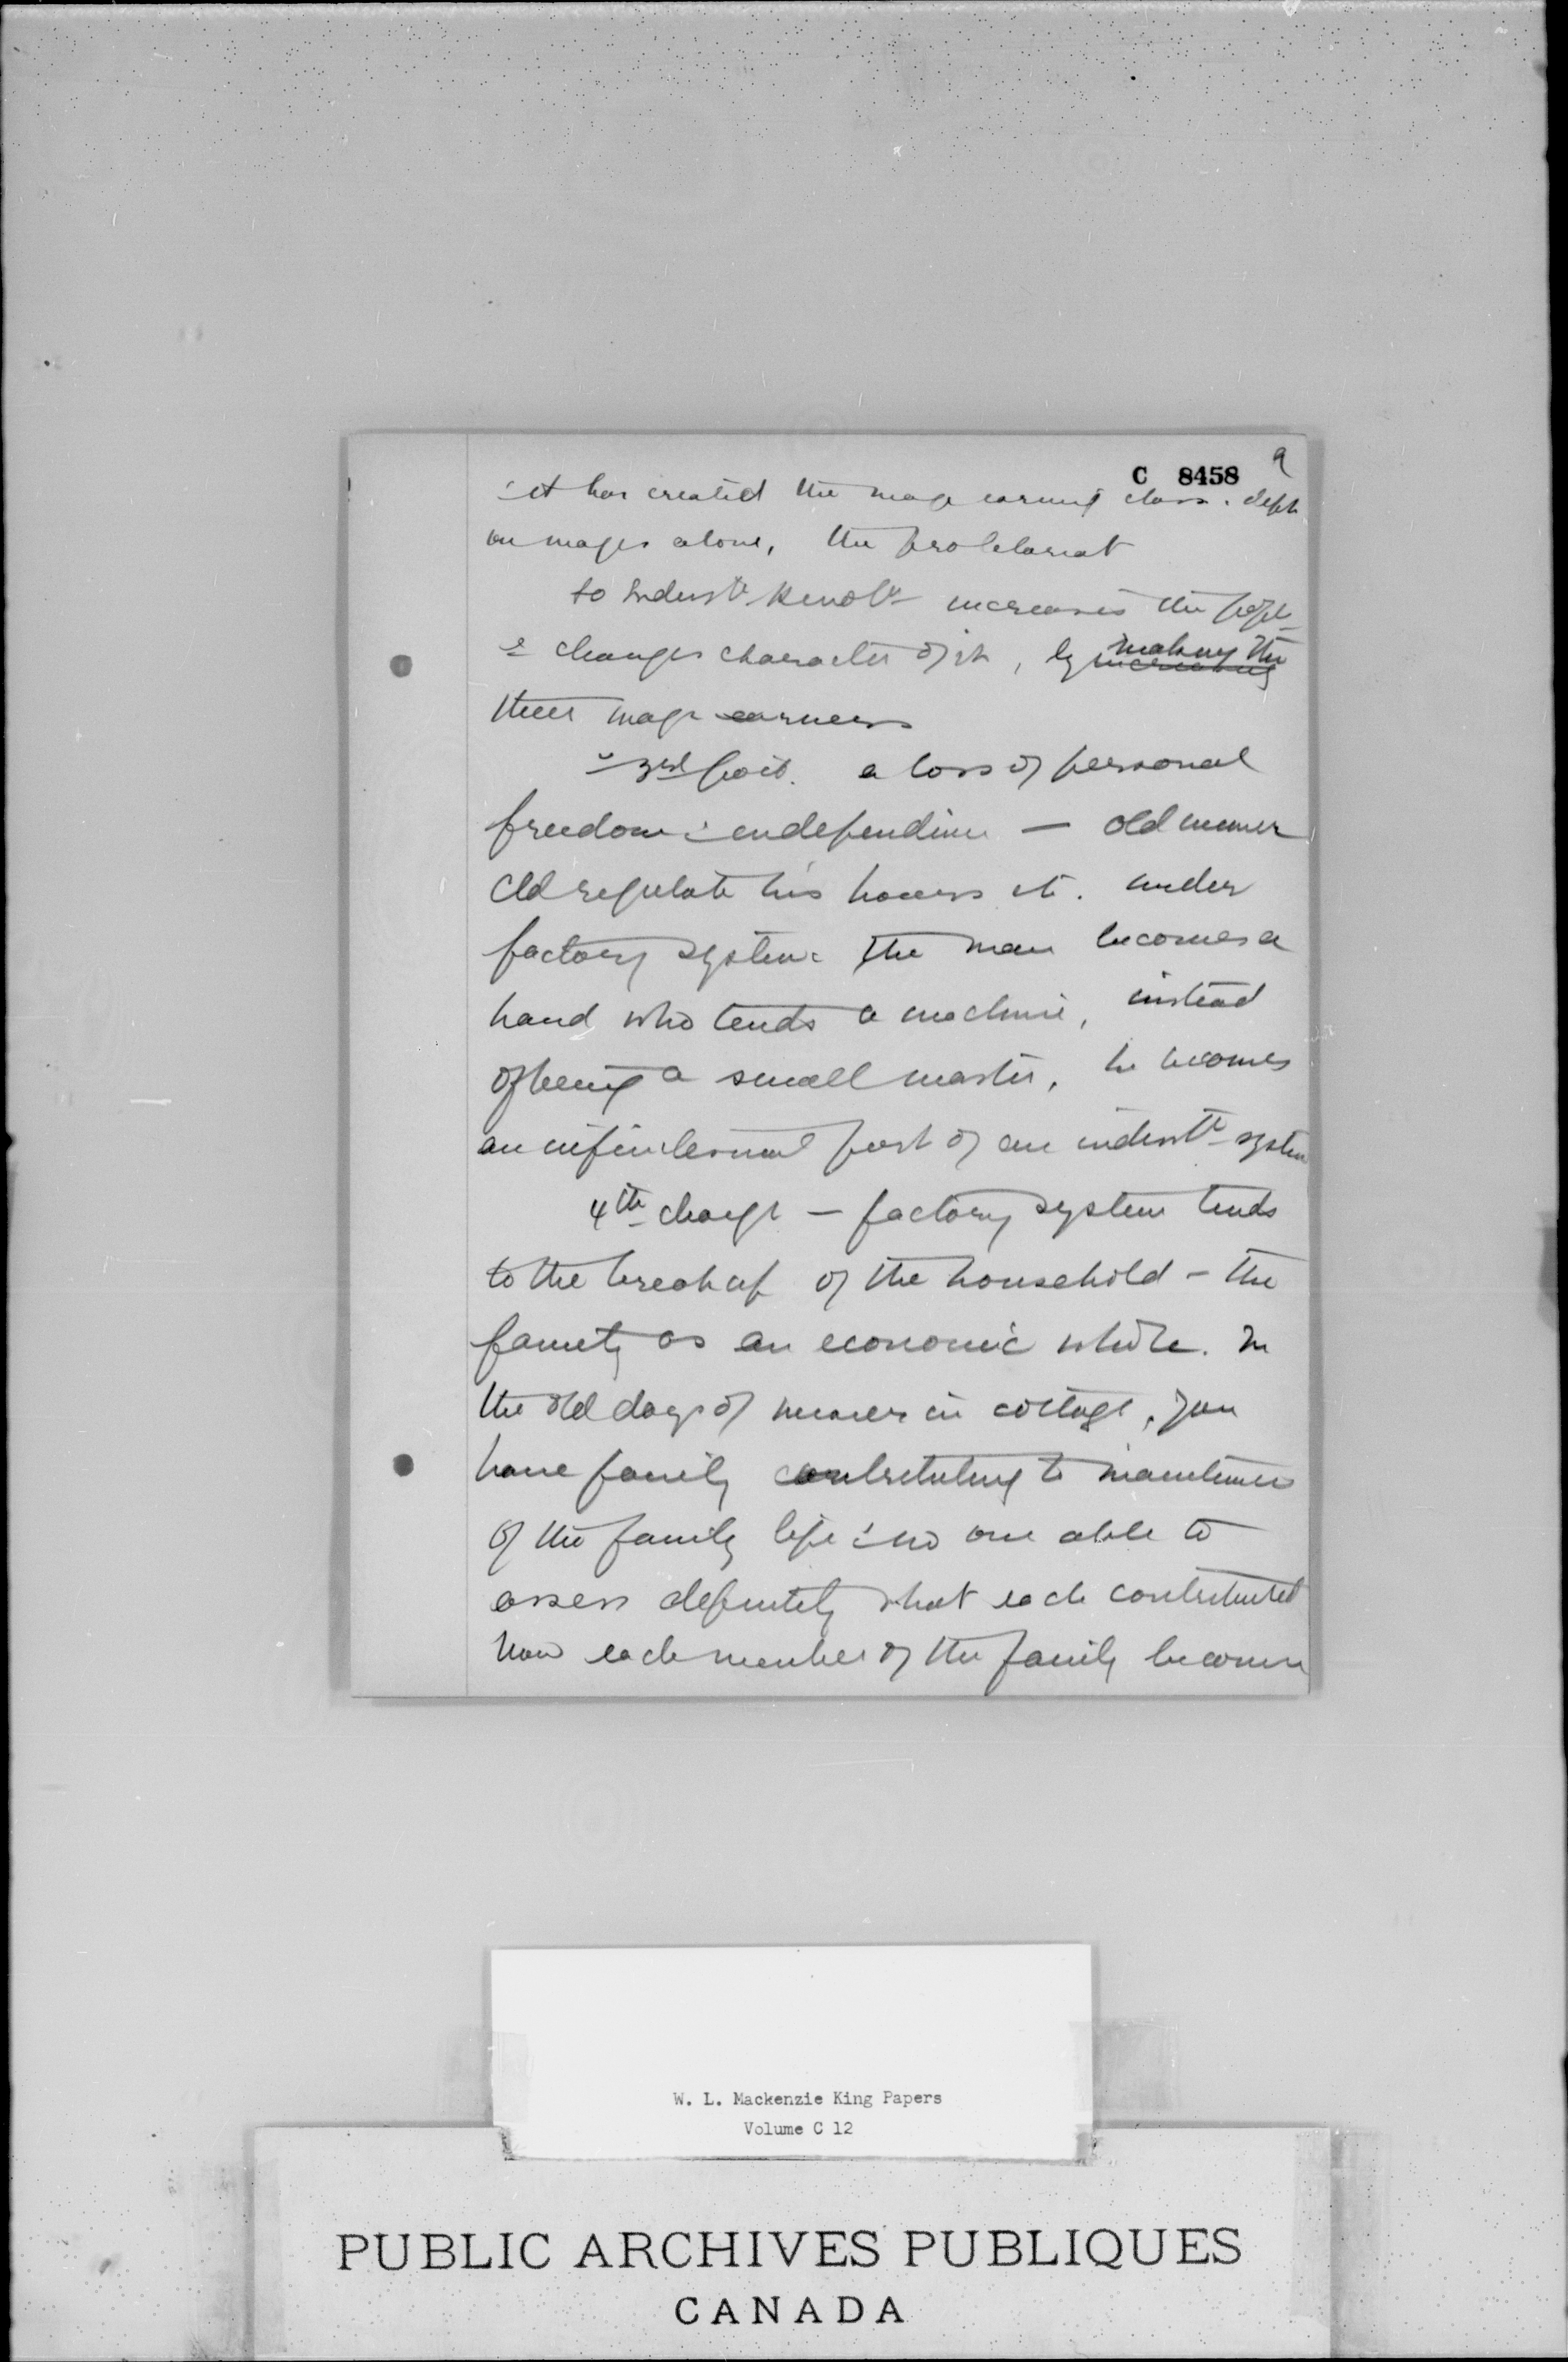 9
C 8458
it has created the wage earning class. dept
on wages alone, the proletariat
so Industl Revoltn increases the popl
& changes character of it, by making the
increasing
wage earners
3rd point. a loss of personal
freedom & independence — old weaver
cld regulate his hours etc. under
factory system the man becomes a
hand who tends a machine, instead
of being a small master, he becomes
an infinitesimal part of an industl system
4th change — factory system tends
to the breakup of the household — the
family as an economic whole. In
the old days of weaver in cottage, you
have family contributing to maintenance
of the family life & no one able to
assess definitely what each contributed
Now each member of the family becomes
W. L. Mackenzie King Papers
Volume C 12
PUBLIC ARCHIVES PUBLIQUES
CANADA